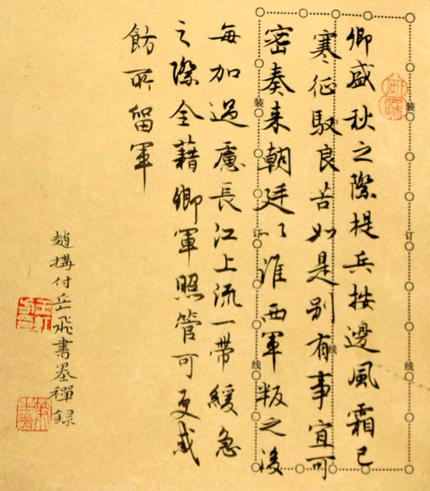 卿盛秋之際提兵按邊風霜已
寒征馭良苦如是別有事宜可
密奏来朝廷以淮西軍叛之後
每加過慮長江上流一帶緩急
之際全藉卿軍照管可更戒
飭所留軍
趙構付岳飛書墨禪録
装订线
装订线